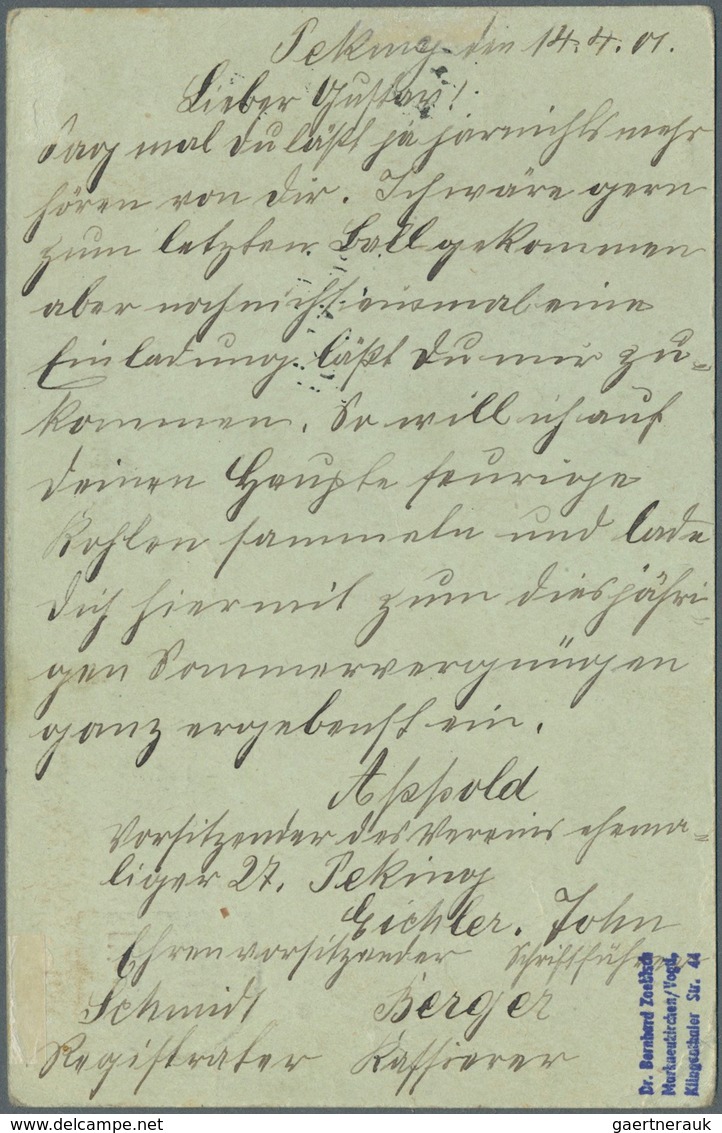 Peking den 14.4.01.
Lieber Gustav!
Sag mal du läßt ja jarnichts mehr
hören von dir. Ich wäre gern
zum letzten Ball gekommen
aber noch nicht einmal eine
Einladung läßt du mir zu=
kommen. So will ich auf
deinen Haupte feurige
Kohlen sammeln und lade
dich hiermit zum diesjähri=
gen Sommervergnügen
ganz ergebenst ein.
Appold
Vorsitzender des Vereins ehema=
liger 27. Peking
Eichler. John
Ehrenvorsitzender Schriftführer
Schmidt Berger
Registrater Kassierer
Dr. Bernhard Zoebisch
Markneukirchen/Vogtl.
Klingenthaler Str. 44
gaertnerauk